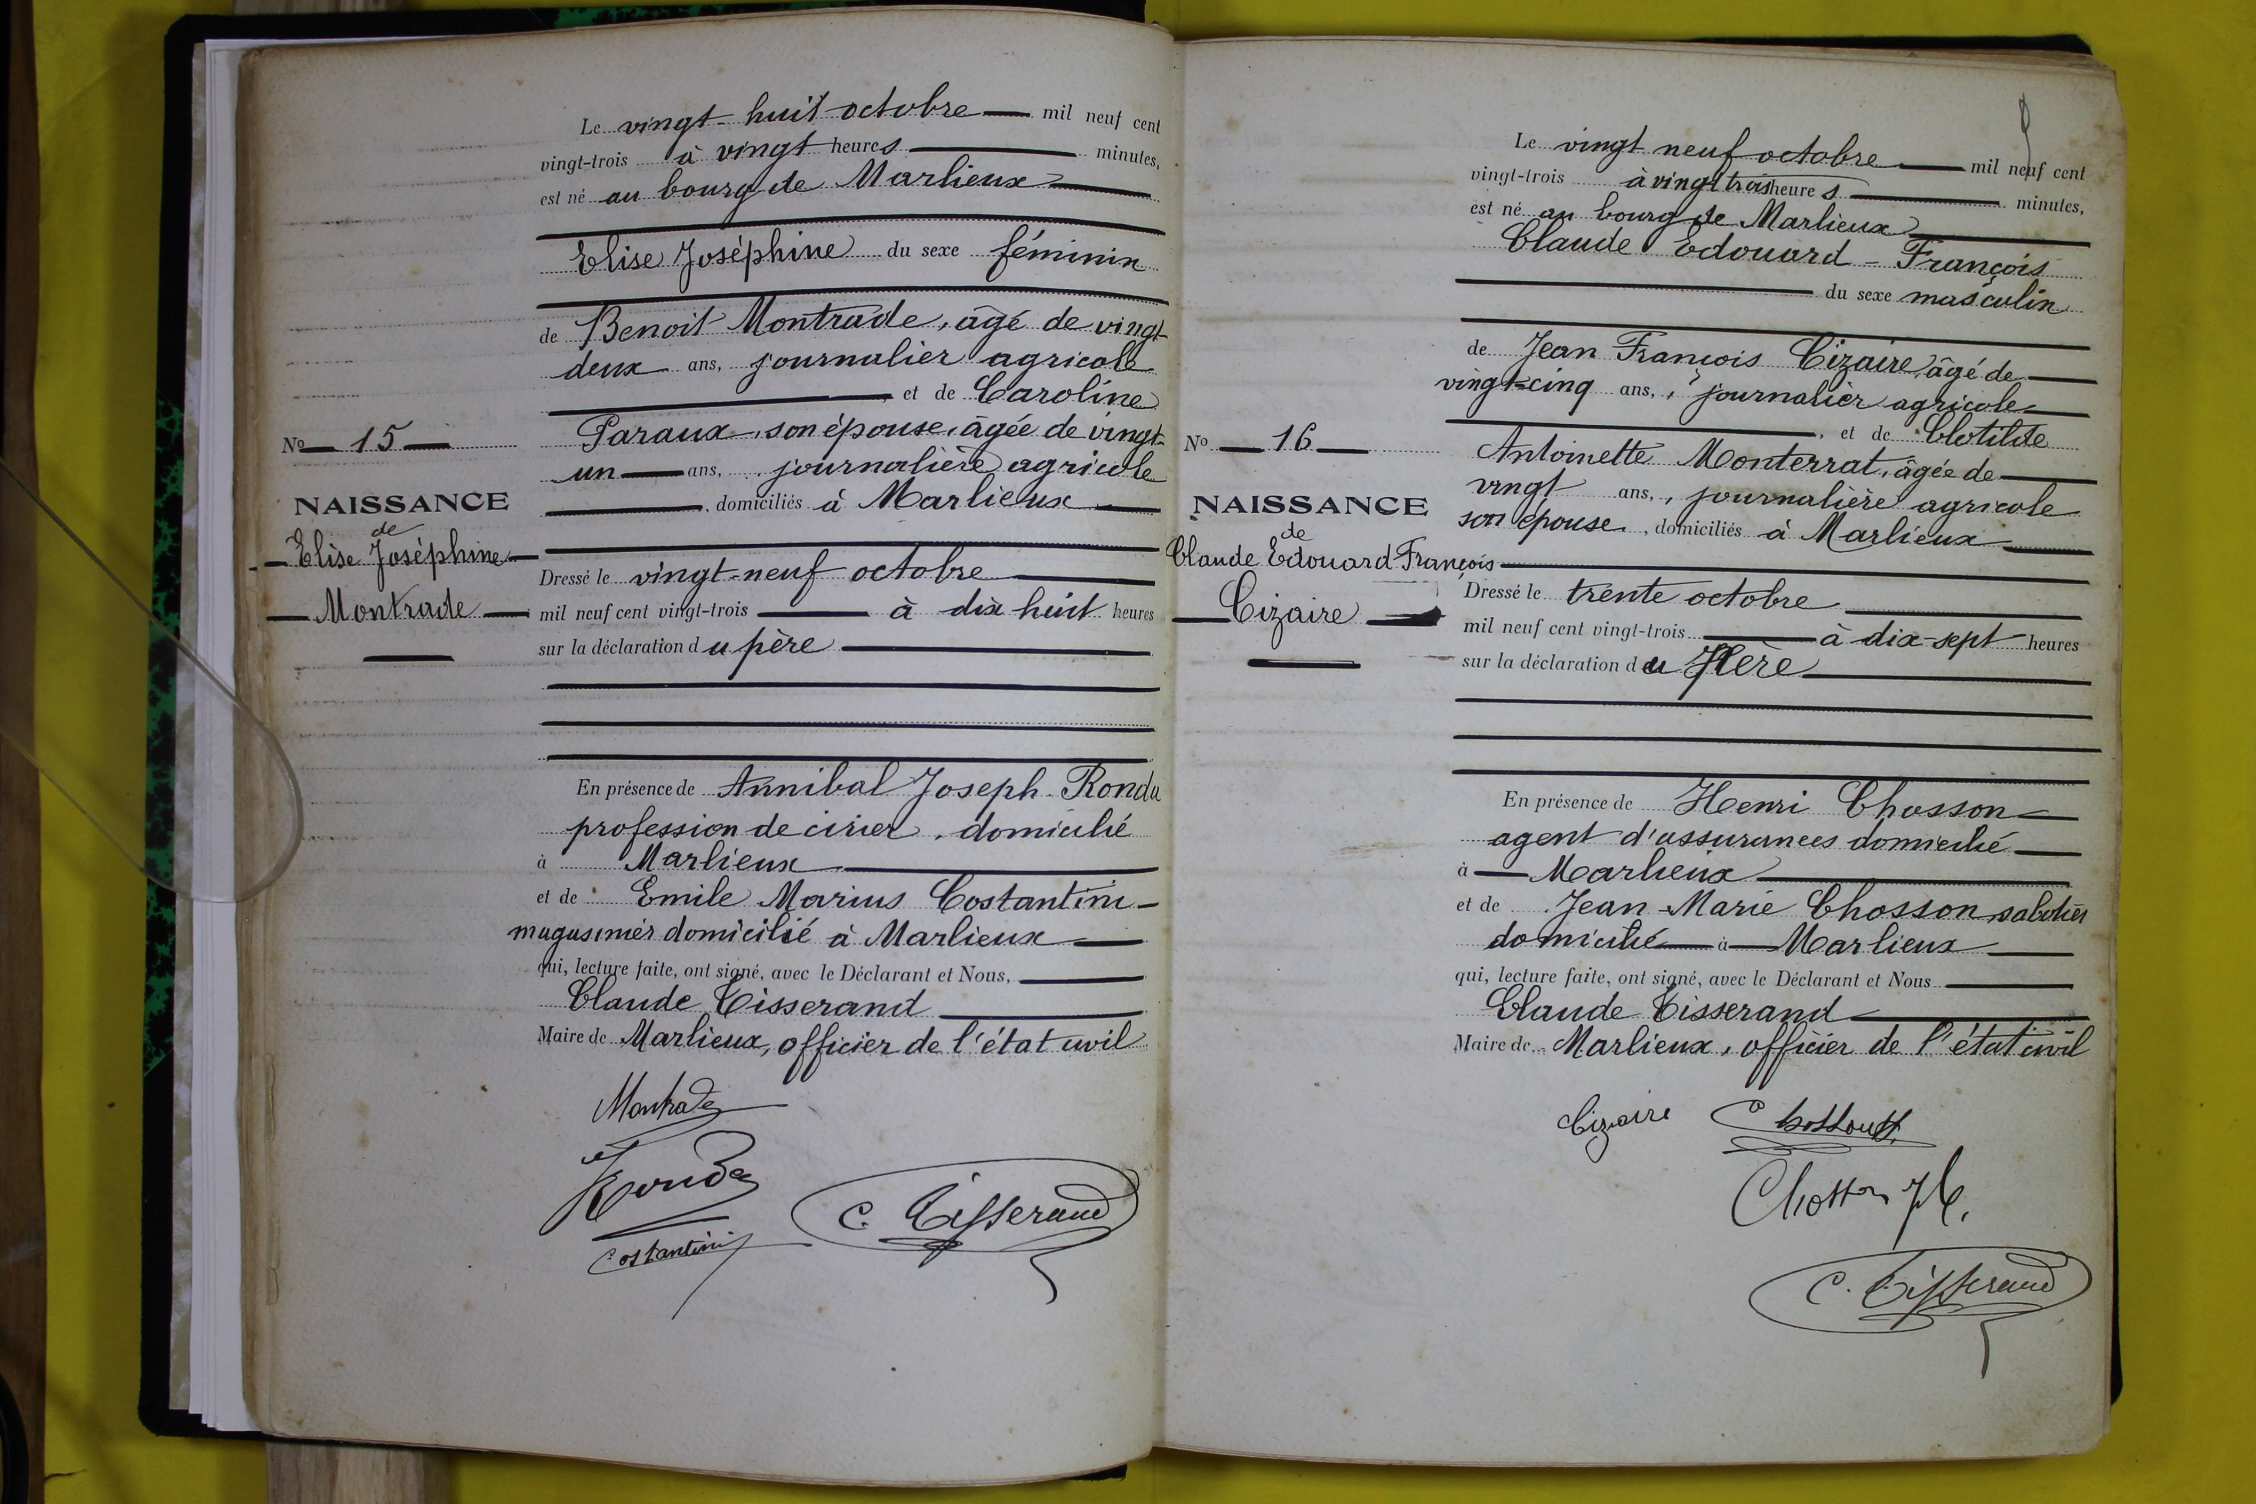 Le vingt-huit octobre mil neuf cent
vingt-trois à vingt heures minutes,
est né au bourg de Marlieux
Elise Joséphine du sexe féminin
de Benoit Montrade, âgé de vingt-
deux ans, journalier agricole
et de Caroline
Paraux, son épouse, âgée de vingt-
un ans, journalière agricole
, domiciliés à Marlieux
No 15
NAISSANCE
de
Elise Joséphine
Montrade
Dressé le vingt-neuf octobre
mil neuf cent vingt-trois à dix huit heures
sur la déclaration du père
En présence de Annibal Joseph Ronda
profession de cirier, domicilié
à Marlieux
et de Emile Marius Costantini
magasinier domicilié à Marlieux
qui, lecture faite, ont signé, avec le Déclarant et Nous,
Claude Tisserand
Maire de Marlieux, officier de l'état civil
Montrade
Ronda
Costantini
C. Tisserand
Le vingt neuf octobre mil neuf cent
vingt-trois à vingt trois heures minutes,
est né au bourg de Marlieux
Claude Edouard-François
du sexe masculin
de Jean François Cizaire, âgé de
vingt-cinq ans, journalier agricole
, et de Clotilde
Antoinette Monterrat, âgée de
vingt ans, journalière agricole
son épouse, domiciliés à Marlieux
No 16
NAISSANCE
de
Claude Edouard François
Cizaire
Dressé le trente octobre
mil neuf cent vingt-trois à dix-sept heures
sur la déclaration du Père
En présence de Henri Chosson
agent d'assurances domicilié
à Marlieux
et de Jean-Marie Chosson sabotier
domicilié à Marlieux
qui, lecture faite, ont signé, avec le Déclarant et Nous
Claude Tisserand
Maire de Marlieux, officier de l'état civil
Cizaire
Chosson
C. Tisserand